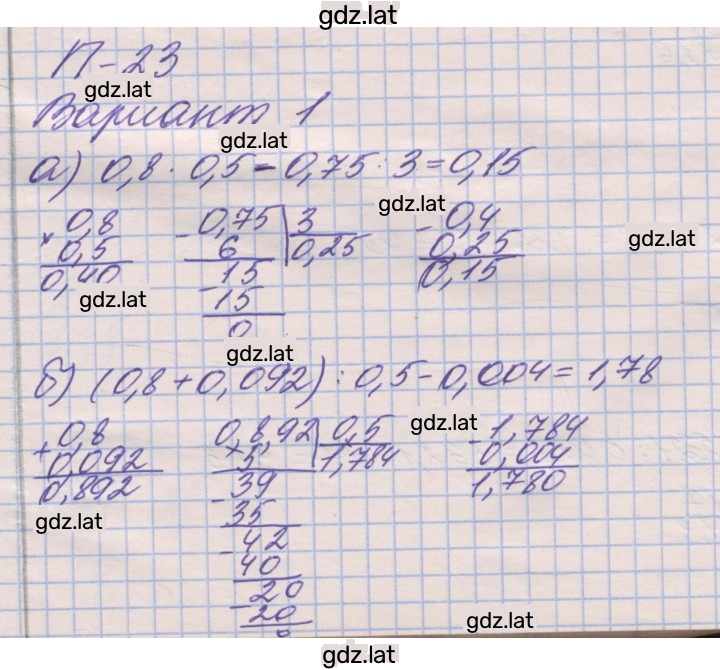 gdz.lat
П-23
gdz.lat
Вариант 1
gdz.lat
а) 0,8 · 0,5 - 0,75 : 3 = 0,15
gdz.lat
× 0,8
0,5
0,40
gdz.lat
- 0,75 | 3
6 | 0,25
- 15
15
0
- 0,4
0,25
0,15
gdz.lat
gdz.lat
б) (0,8 + 0,092) : 0,5 - 0,004 = 1,78
gdz.lat
+ 0,8
0,092
0,892
gdz.lat
0,8,92 | 0,5
- 5 | 1,784
39
- 35
42
- 40
20
- 20
0
- 1,784
0,004
1,780
gdz.lat
gdz.lat